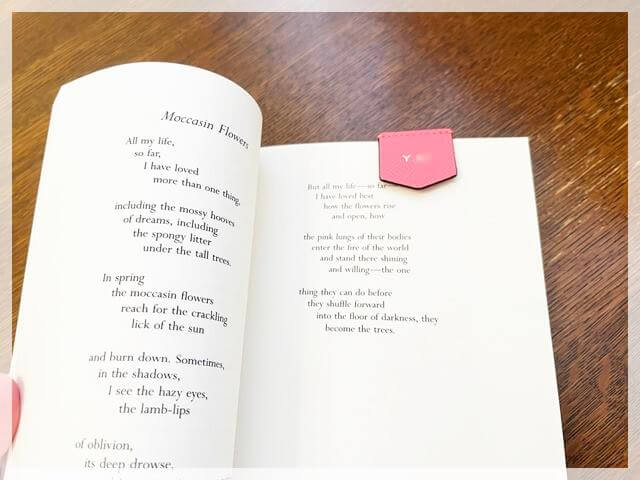 Moccasin Flowers
All my life,
so far,
I have loved
more than one thing,
including the mossy hooves
of dreams, including
the spongy litter
under the tall trees.
In spring
the moccasin flowers
reach for the crackling
lick of the sun
and burn down. Sometimes,
in the shadows,
I see the hazy eyes,
the lamb-lips
of oblivion,
its deep drowse,
Y
But all my life—so far—
I have loved best
how the flowers rise
and open, how
the pink lungs of their bodies
enter the fire of the world
and stand there shining
and willing—the one
thing they can do before
they shuffle forward
into the floor of darkness, they
become the trees.